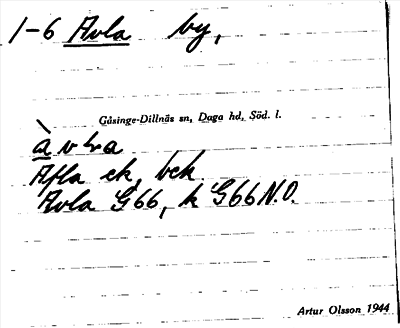 1-6 Avla by,
Gåsinge-Dillnäs sn, Daga hd, Söd. l.
Afla ek, bek
Avla G66, k G66 N.O.
Artur Olsson 1944